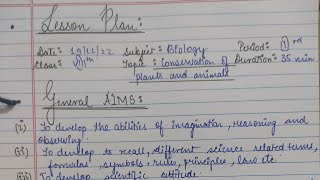 Lesson Plan:
Date: 19/11/22 Subject: Biology Period: 1st
Class: Topic: Conservation of Duration: 35 min
plants and animals
General AIMS:
(i) To develop the abilities of imagination, reasoning and
observing.
(ii) To develop to recall, different science related terms,
formulas, symbols, rules, principles, law etc.
(iii) To develop scientific attitude.